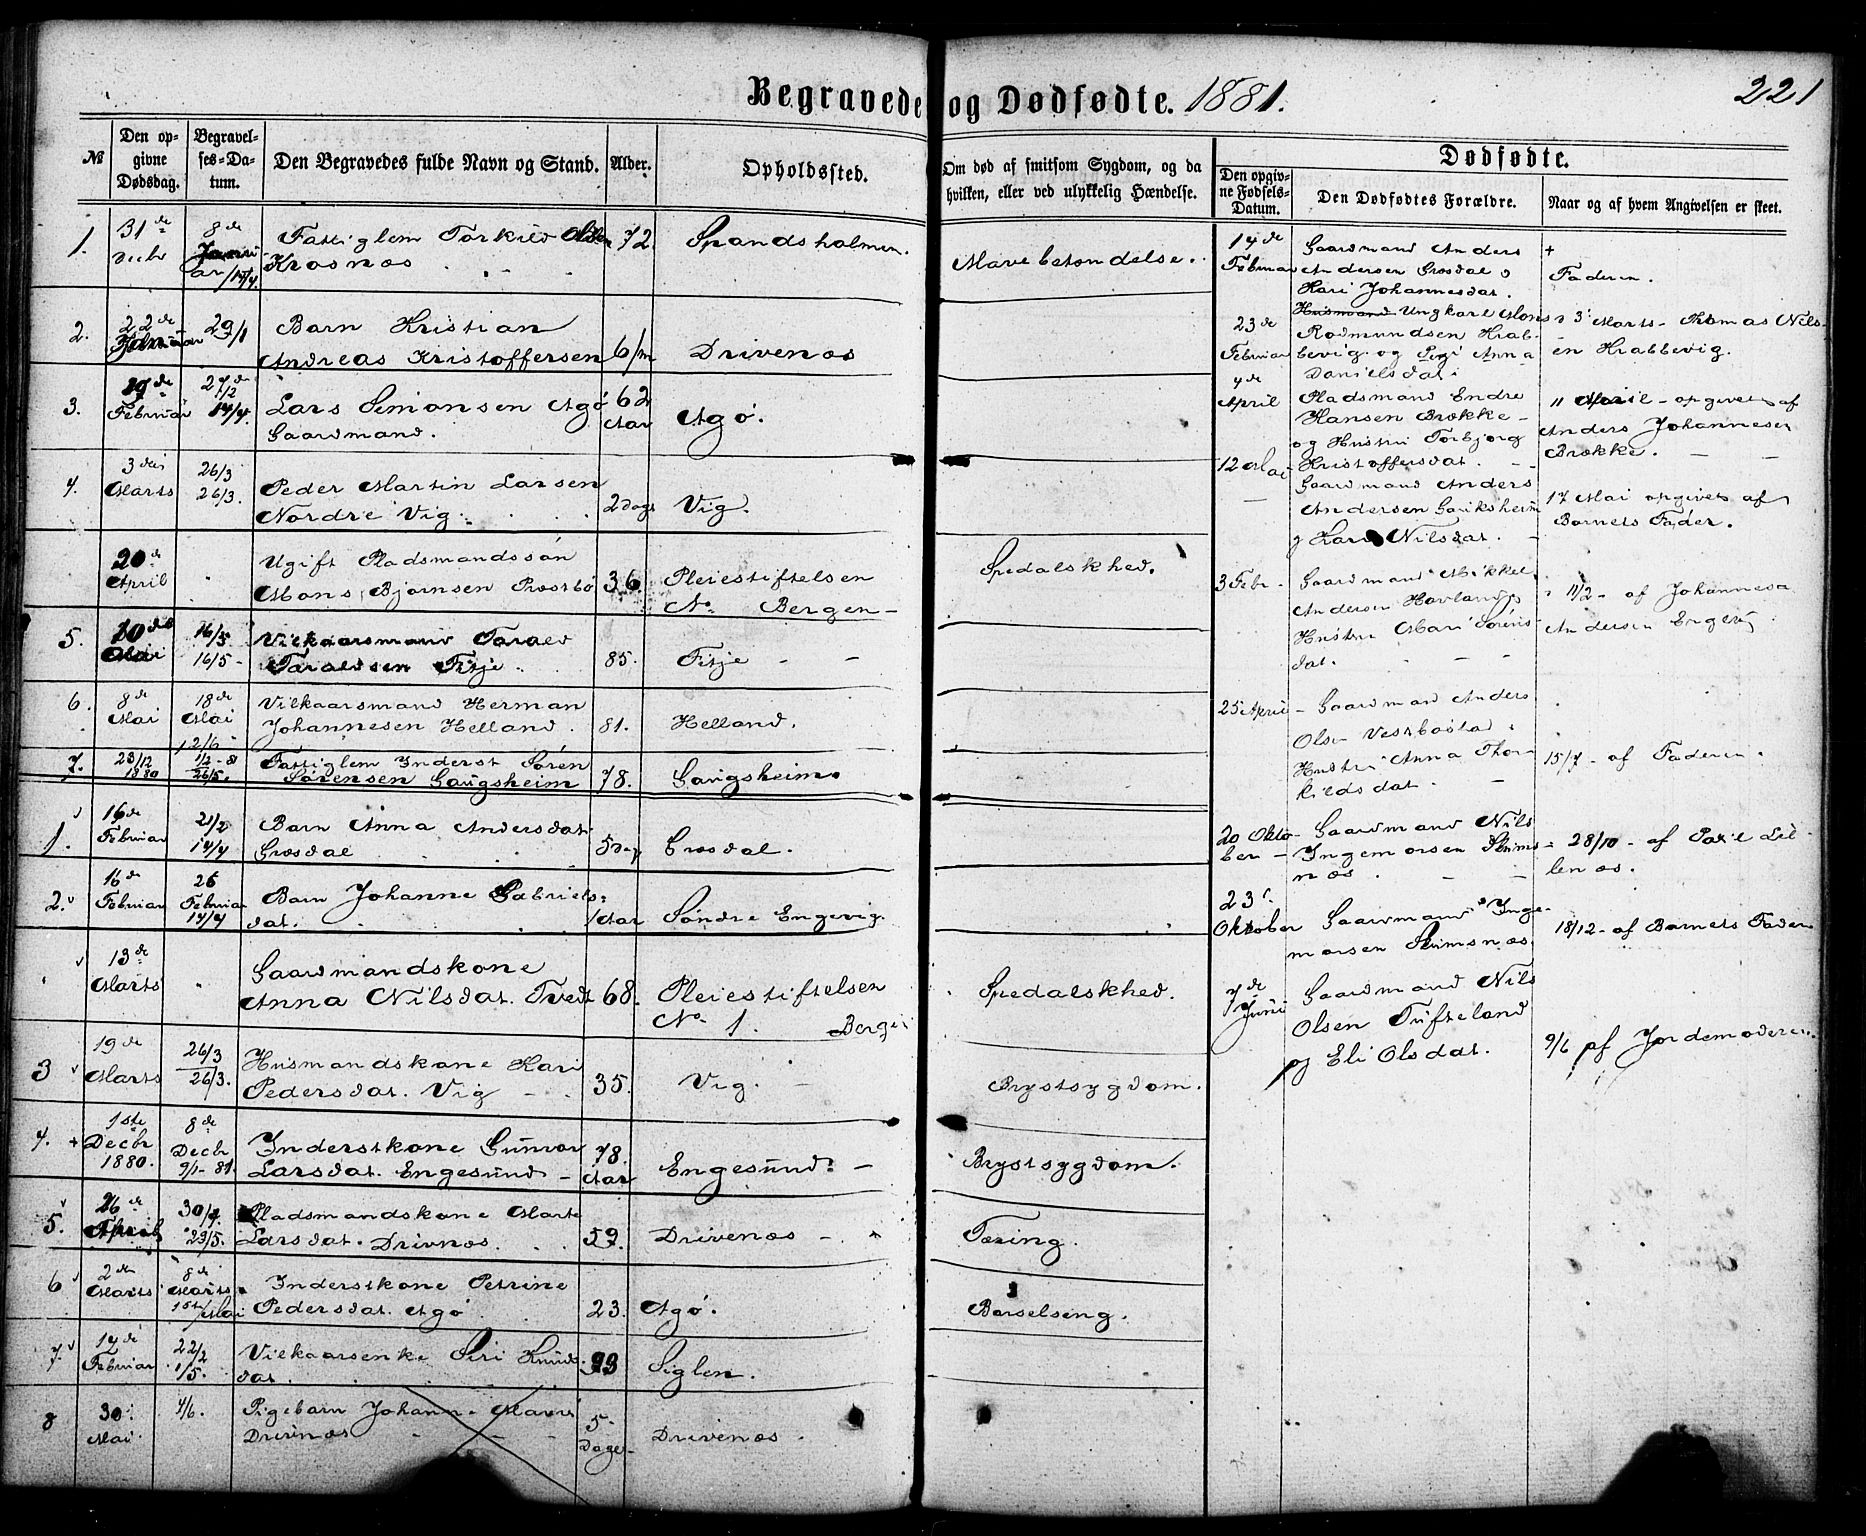 Begravede og Dødfødte. 1881.
221
№
Den opgivne Dødsdag.
Begravelses-Datum.
Den Begravedes fulde Navn og Stand.
Alder.
Opholdssted.
Om død af smitsom Sygdom, og da
hvilken, eller ved ulykkelig Hændelse.
Dødfødte.
Den opgivne Fødsels-Datum.
Den Dødfødtes Forældre.
Naar og af hvem Angivelsen er skeet.
1. 31de Decbr 8de Januar 17/4 Fattiglem Torkild Olsen 72. Spandsholmen. Mavebetændelse.
Krosnæs
2. 22de Januar 29/1 Barn Kristian
Andreas Kristoffersen 6/m Drivenæs
3. 19de Februar 27de/2 17/4. Lars Simonsen Agø 62 Aar Agø.
Gaardmand.
4. 3die Marts 26/3 26/3. Peder Martin Larsen
Nordre Vig. 2 Dage Vig.
20de April Ugift Pladsmandssøn
Mons Bjørnsen Præstbø 36. Pleiestiftelsen Spedalskhed.
No Bergen
5. 10de Mai 16/5 16/5 Vilkaarsmand Tarald
Taraldsen Fitje 85. Fitje
6. 8de Mai 18de Mai Vilkaarsmand Herman
Johannesen Helland. 81. Helland.
12/6
7. 23/12 1880 1/2-81 26/5. Fattiglem Inderst Søren
Sørensen Gaugsheim 78. Gaugsheim
1. 16de Februar 21/2 17/4 Barn Anna Andersdat
Græsdal 5 Dag Græsdal.
2. 16de Februar 26 Februar 17/4 Barn Johanne Gabriels-
dat. 1 Aar Søndre Engevig.
13de Marts Gaardmandskone
Anna Nilsdat. Tvedt 68. Pleiestiftelsen Spedalskhed.
No 1. Bergen
3 19de Marts 26/3 26/3. Husmandskone Kari
Pedersdat. Vig 35. Vig. Brystsygdom.
4. + 1ste Decbr 1880. 8de Decbr 9/1-81 Inderstkone Gunvor 78.
Larsdat. Engesund Aar Engesund. Brystsygdom.
5. 26de April 30/4. 29/5. Pladsmandskone Marte
Larsdat. Drivnæs. 59. Drivenæs Tæring.
6 2den Marts 8de Marts 1ste/Mai Inderstkone Petrine
Pedersdat. Agø 23. Agø. Barselseng.
7. 14de Februar 22/2 1/5. Vilkaarsenke Siri Knuds-
dat. 93 Siglen.
8 30. Mai 4/6. Pigebarn Johanne Marie 5
Drivnæs Dage Drivenæs.
14de Februar Gaardmand Anders +
Andersen Græsdal o Faderen.
Kari Johannesdat.
23de Februar Husmand Ungkarl Mons 3' Marts - Thomas Nils-
Rodmundsen Krab- en Krabbevig.
bevig. og Pigi Anna
Danielsdat.
4de April Pladsmand Endre 11 April - opgivet af
Hansen Brække- Anders Johannesen
og Hustru Torbjørg Brække.
Kristoffersdat.
12 Mai Gaardmand Anders 17 Mai opgivet af
Andersen Gauksheim Barnets Fader.
og Kari Nilsdat.
3 Febr - Gaardmand Mikkel 11/2 - af Johannes
Andersen Havland og Andersen Engevig
Hustru Mari Sørens-
dat.
25 April - Gaardmand Anders
Olsen Vestbøstad
Hustru Anna Thor- 15/7 - af Faderen.
kildsdat.
20 Okto-
ber - Gaardmand Nils 28/10 - af Paxe Lil-
Ingemorsen Skims- lenæs.
næs.
23' Oktober Gaardmand Inge- 18/12 - af Barnets Fader
morsen Skimsnæs.
7de Juni Gaardmand Nils
Olsen Tufteland
og Eli Olsdat. 9/6 af Jordemoderen.